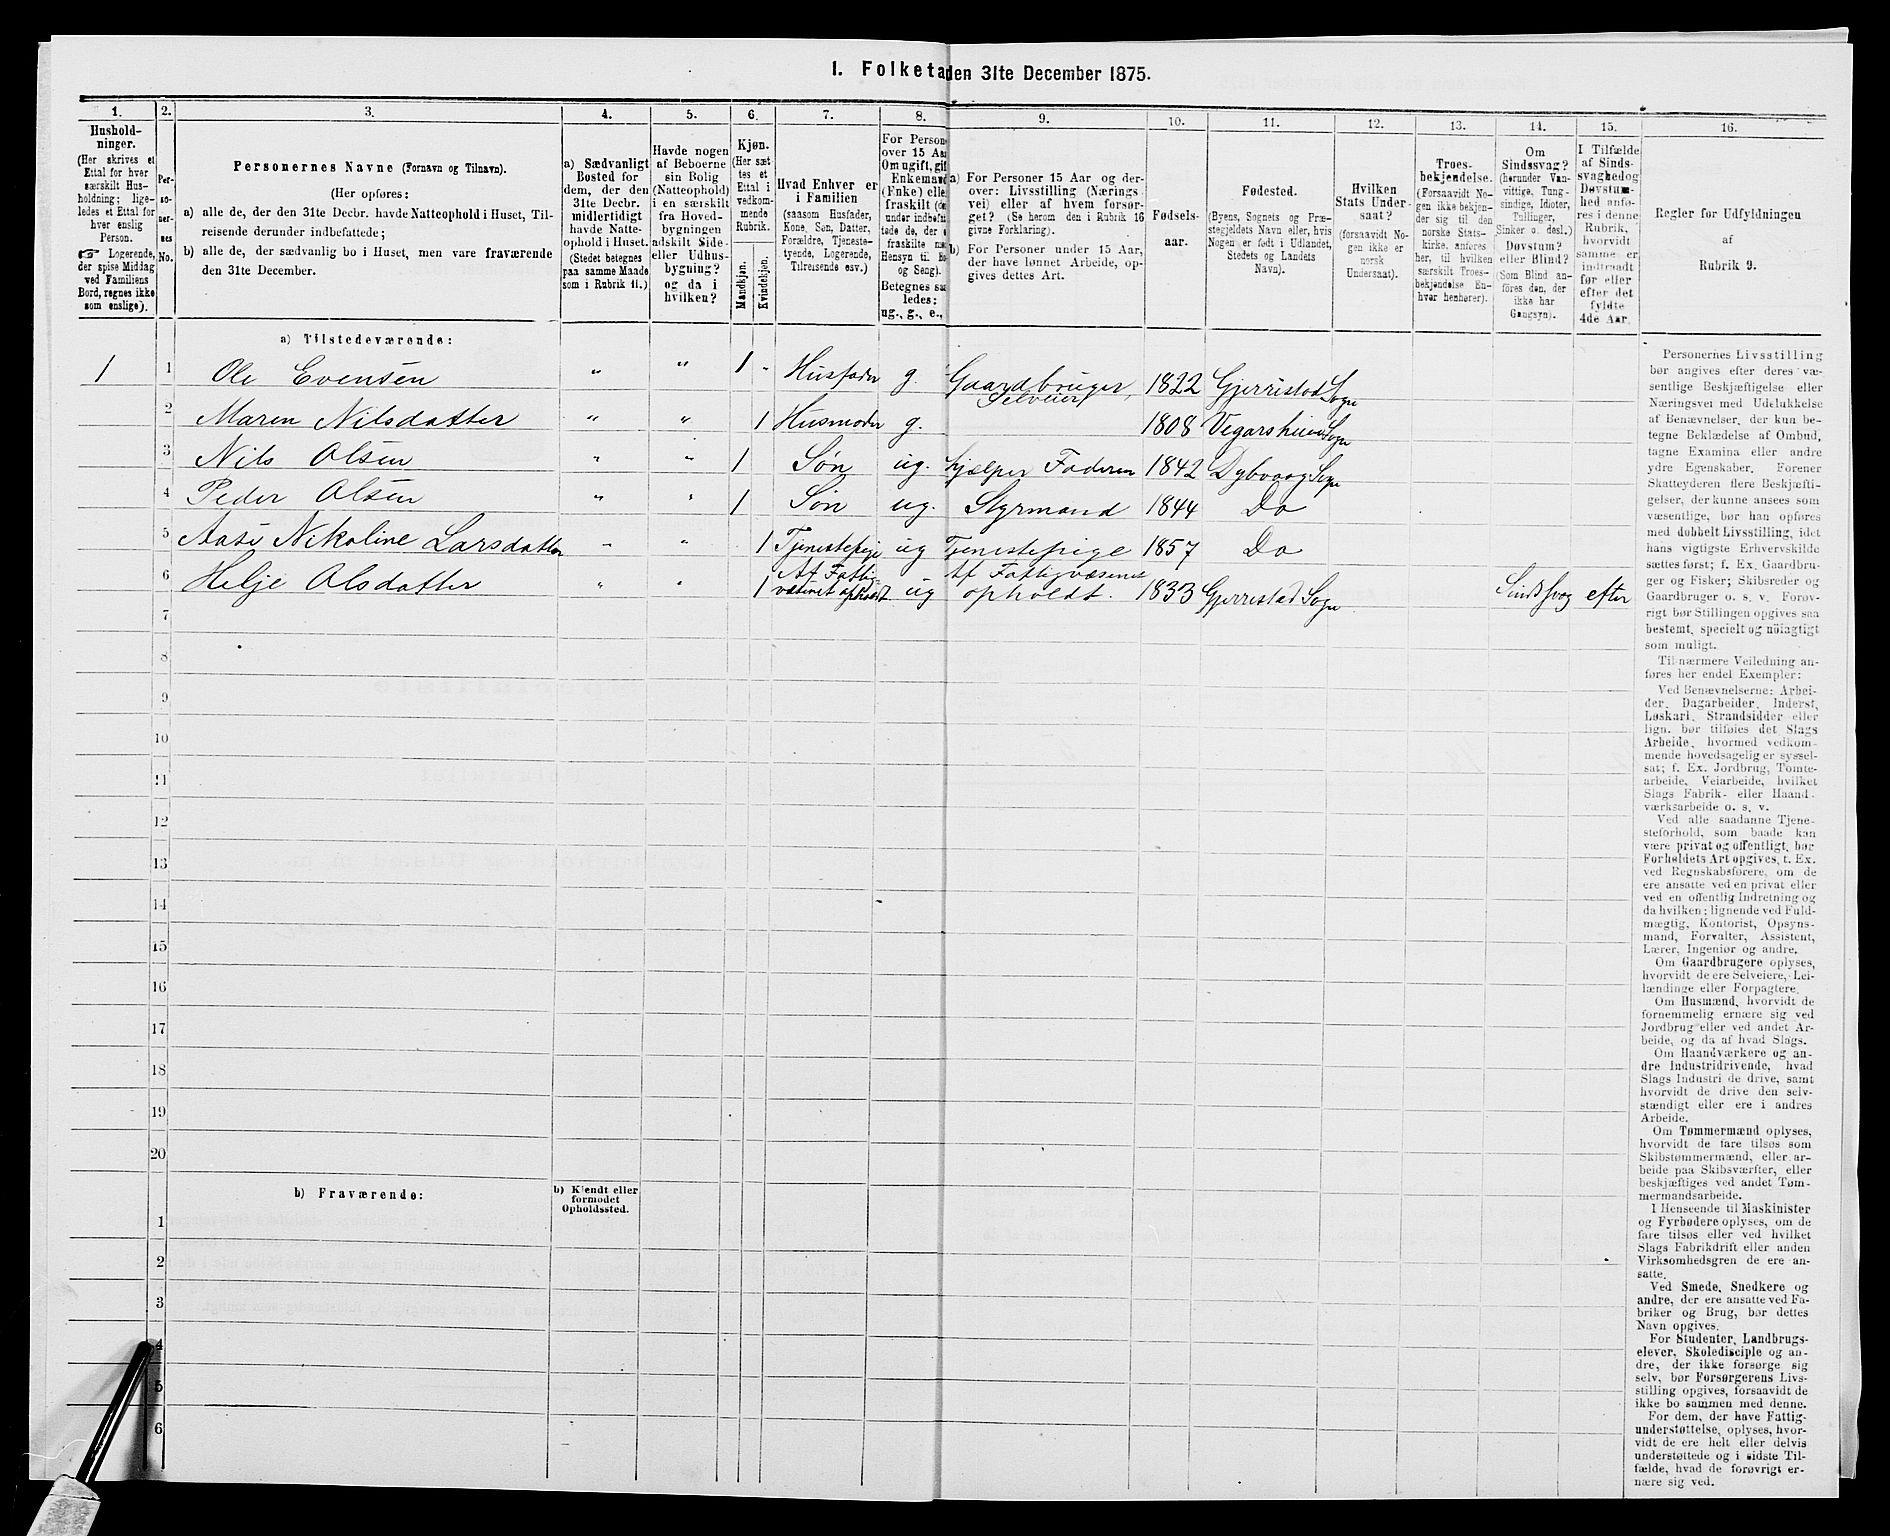 1. Folketa den 31te December 1875.
1. 2. 3. 4. 5. 6. 7. 8. 9. 10. 11. 12. 13. 14. 15. 16.
Hushold-
ninger.
(Her skrives et
Ettal for hver
særskilt Hus-
holdning; lige-
ledes et Ettal for
hver enslig
Person.
Logerende,
der spise Middag
ved Familiens
Bord, regnes ikke
som enslige).
Per-
so-
ner-
nes
No.
Personernes Navne (Fornavn og Tilnavn).
(Her opføres:
a) alle de, der den 31te Decbr. havde Natteophold i Huset, Til-
reisende derunder indbefattede;
b) alle de, der sædvanlig bo i Huset, men vare fraværende
den 31te December.
a) Sædvanligt
Bosted for
dem, der den
31te Decbr.
midlertidigt
havde Natte-
ophold i Huset.
(Stedet betegnes
paa samme Maade
som i Rubrik 11.)
Havde nogen
af Beboerne
sin Bolig
(Natteophold)
i en særskilt
fra Hoved-
bygningen
adskilt Side-
eller Udhus-
bygning?
og da i
hvilken?
Kjøn.
(Her sæt
tes et
Ettal i
vedkom-
mende
Rubrik.
Mandkjøn.
Kvindekjøn.
Hvad Enhver er
i Familien
(saasom Husfader,
Kone, Søn, Datter,
Forældre, Tjeneste-
tyende, Logerende,
Tilreisende osv.)
For Person
over 15 Aa
Om ugift, gif
Enkemand
(Enke) elle
fraskilt (de
under indbefat
tede de, der e
fraskilte m
Hensyn til Bo
og Seng).
Betegnes saa
ledes:
ug., g., e.,
a) For Personer 15 Aar og der-
over: Livsstilling (Nærings
vei) eller af hvem forsør-
get? (Se herom den i Rubrik 16
givne Forklaring).
b) For Personer under 15 Aar,
der have lønnet Arbeide, op-
gives dettes Art.
Fødsels-
aar.
Fødested.
(Byens, Sognets og Præ-
stegjeldets Navn eller, hvis
Nogen er født i Udlandet,
Stedets og Landets
Navn).
Hvilken
Stats Under-
saat?
(forsaavidt No-
gen ikke er
norsk
Undersaat).
Troes-
bekjendelse.
(Forsaavidt No-
gen ikke bekjen-
der sig til den
norske Stats-
kirke, anføres
her, til hvilken
særskilt Troes-
bekjendelse En-
hver henhører).
Om
Sindssvag?
(herunder Van-
vittige, Tung-
sindige, Idioter,
Tullinger,
Sinker o. desl.)
Døvstum?
eller Blind?
(Som Blind an-
føres den, der
ikke har
Gangsyn).
I Tilfælde
af Sinds-
svaghed og
Døvstum-
hed anfø-
res i denne
Rubrik,
hvorvidt
samme er
indtraadt
før eller
efter det
fyldte
4de Aar.
Regler for Udfyldningen
af
Rubrik 9.
a) Tilstedeværende:
1 1 Ole Evensen " " 1 " Husfader g. Gaardbruger, Selveier 1822 Gjerrestad Sogn
2 Maren Nilsdatter " " 1 Husmoder g. 1808 Vegarsheien Sogn
3 Nils Olsen " " 1 Søn ug. hjælper Faderen 1842 Dybvaag Sogn
4 Peder Olsen " " 1 Søn ug. Styrmand 1844 Do
5 Aase Nikoline Larsdatter " " 1 Tjenestepige ug Tjenestepige 1857 Do
6 Helje Olsdatter " " 1 Af Fattigvæsenet opholdt ug Af Fattigvæsenet opholdt. 1833 Gjerrestad Sogn Sindssvag efter
7
8
9
10
11
12
13
14
15
16
17
18
19
20
b) Fraværende:
b) Kjendt eller
formodet
Opholdssted.
1
2
3
4
5
6
Personernes Livsstilling
bør angives efter deres væ-
sentlige Beskjæftigelse eller
Næringsvei med Udelukkelse
af Benævnelser, der kun be-
tegne Beklædelse af Ombud,
tagne Examina eller andre
ydre Egenskaber. Forener
Skatteyderen flere Beskjæfti-
gelser, der kunne ansees som
væsentlige, bør han opføres
med dobbelt Livsstilling, idet
hans vigtigste Erhvervskilde
sættes først; f. Ex. Gaardbru-
ger og Fisker; Skibsreder og
Gaardbruger o. s. v. Forøv-
rigt bør Stillingen opgives saa
bestemt, specielt og nöiagtigt
som muligt.
Til nærmere Veiledning an-
føres her endel Exempler:
Ved Benævnelserne: Arbei-
der, Dagarbeider, Inderst,
Løskarl, Strandsidder eller
lign. bør tilføies det Slags
Arbeide, hvormed vedkom-
mende hovedsagelig er syssel-
sat; f. Ex. Jordbrug, Tomte-
arbeide, Veiarbeide, hvilket
Slags Fabrik- eller Haand-
værksarbeide o. s. v.
Ved alle saadanne Tjene-
steforhold, som baade kan
være privat og offentligt, bør
Forholdets Art opgives, t. Ex.
ved Regnskabsførere, om de
ere ansatte ved en privat eller
ved en offentlig Indretning og
da hvilken; lignende ved Fuld-
mægtig, Kontorist, Opsyns-
mand, Forvalter, Assistent,
Lærer, Ingeniør og andre.
Om Gaardbrugere oplyses,
hvorvidt de ere Selveiere, Lei-
lændinge eller Forpagtere.
Om Husmænd, hvorvidt de
fornemmelig ernære sig ved
Jordbrug eller ved andet Ar-
beide, og da af hvad Slags.
Om Haandværkere og an-
dre Industridrivende, hvad
Slags Industri de drive, samt
hvorvidt de drive den selv-
stændigt eller ere i andres
Arbeide.
Om Tømmermænd oplyses,
hvorvidt de fare tilsøs som
Skibstømmermænd, eller ar-
beide paa Skibsværfter, eller
beskjæftiges ved andet Tøm-
mermandsarbeide.
I Henseende til Maskinister
og Fyrbødere oplyses, om de
fare tilsøs eller ved hvilket
Slags Fabrikdrift eller anden
Virksomhedsgren de ere an-
satte.
Ved Smede, Snedkere og
andre, der ere ansatte ved Fa-
briker og Brug, bør dettes
Navn opgives.
For Studenter, Landbrugs-
elever, Skoledisciple og an-
dre, der ikke forsørge sig
selv, bør Forsørgerens Livs-
stilling opgives, forsaavidt de
ikke bo sammen med denne.
For dem, der have Fattig-
understøttelse, oplyses, hvor-
vidt de ere helt eller delvis
understøttede og i sidste Til-
fælde, hvad de forøvrigt er-
nære sig ved.